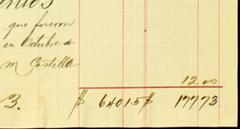 que fueron
en Octubre de
M Castilla
12.00
B. $ 64015 $ 17773